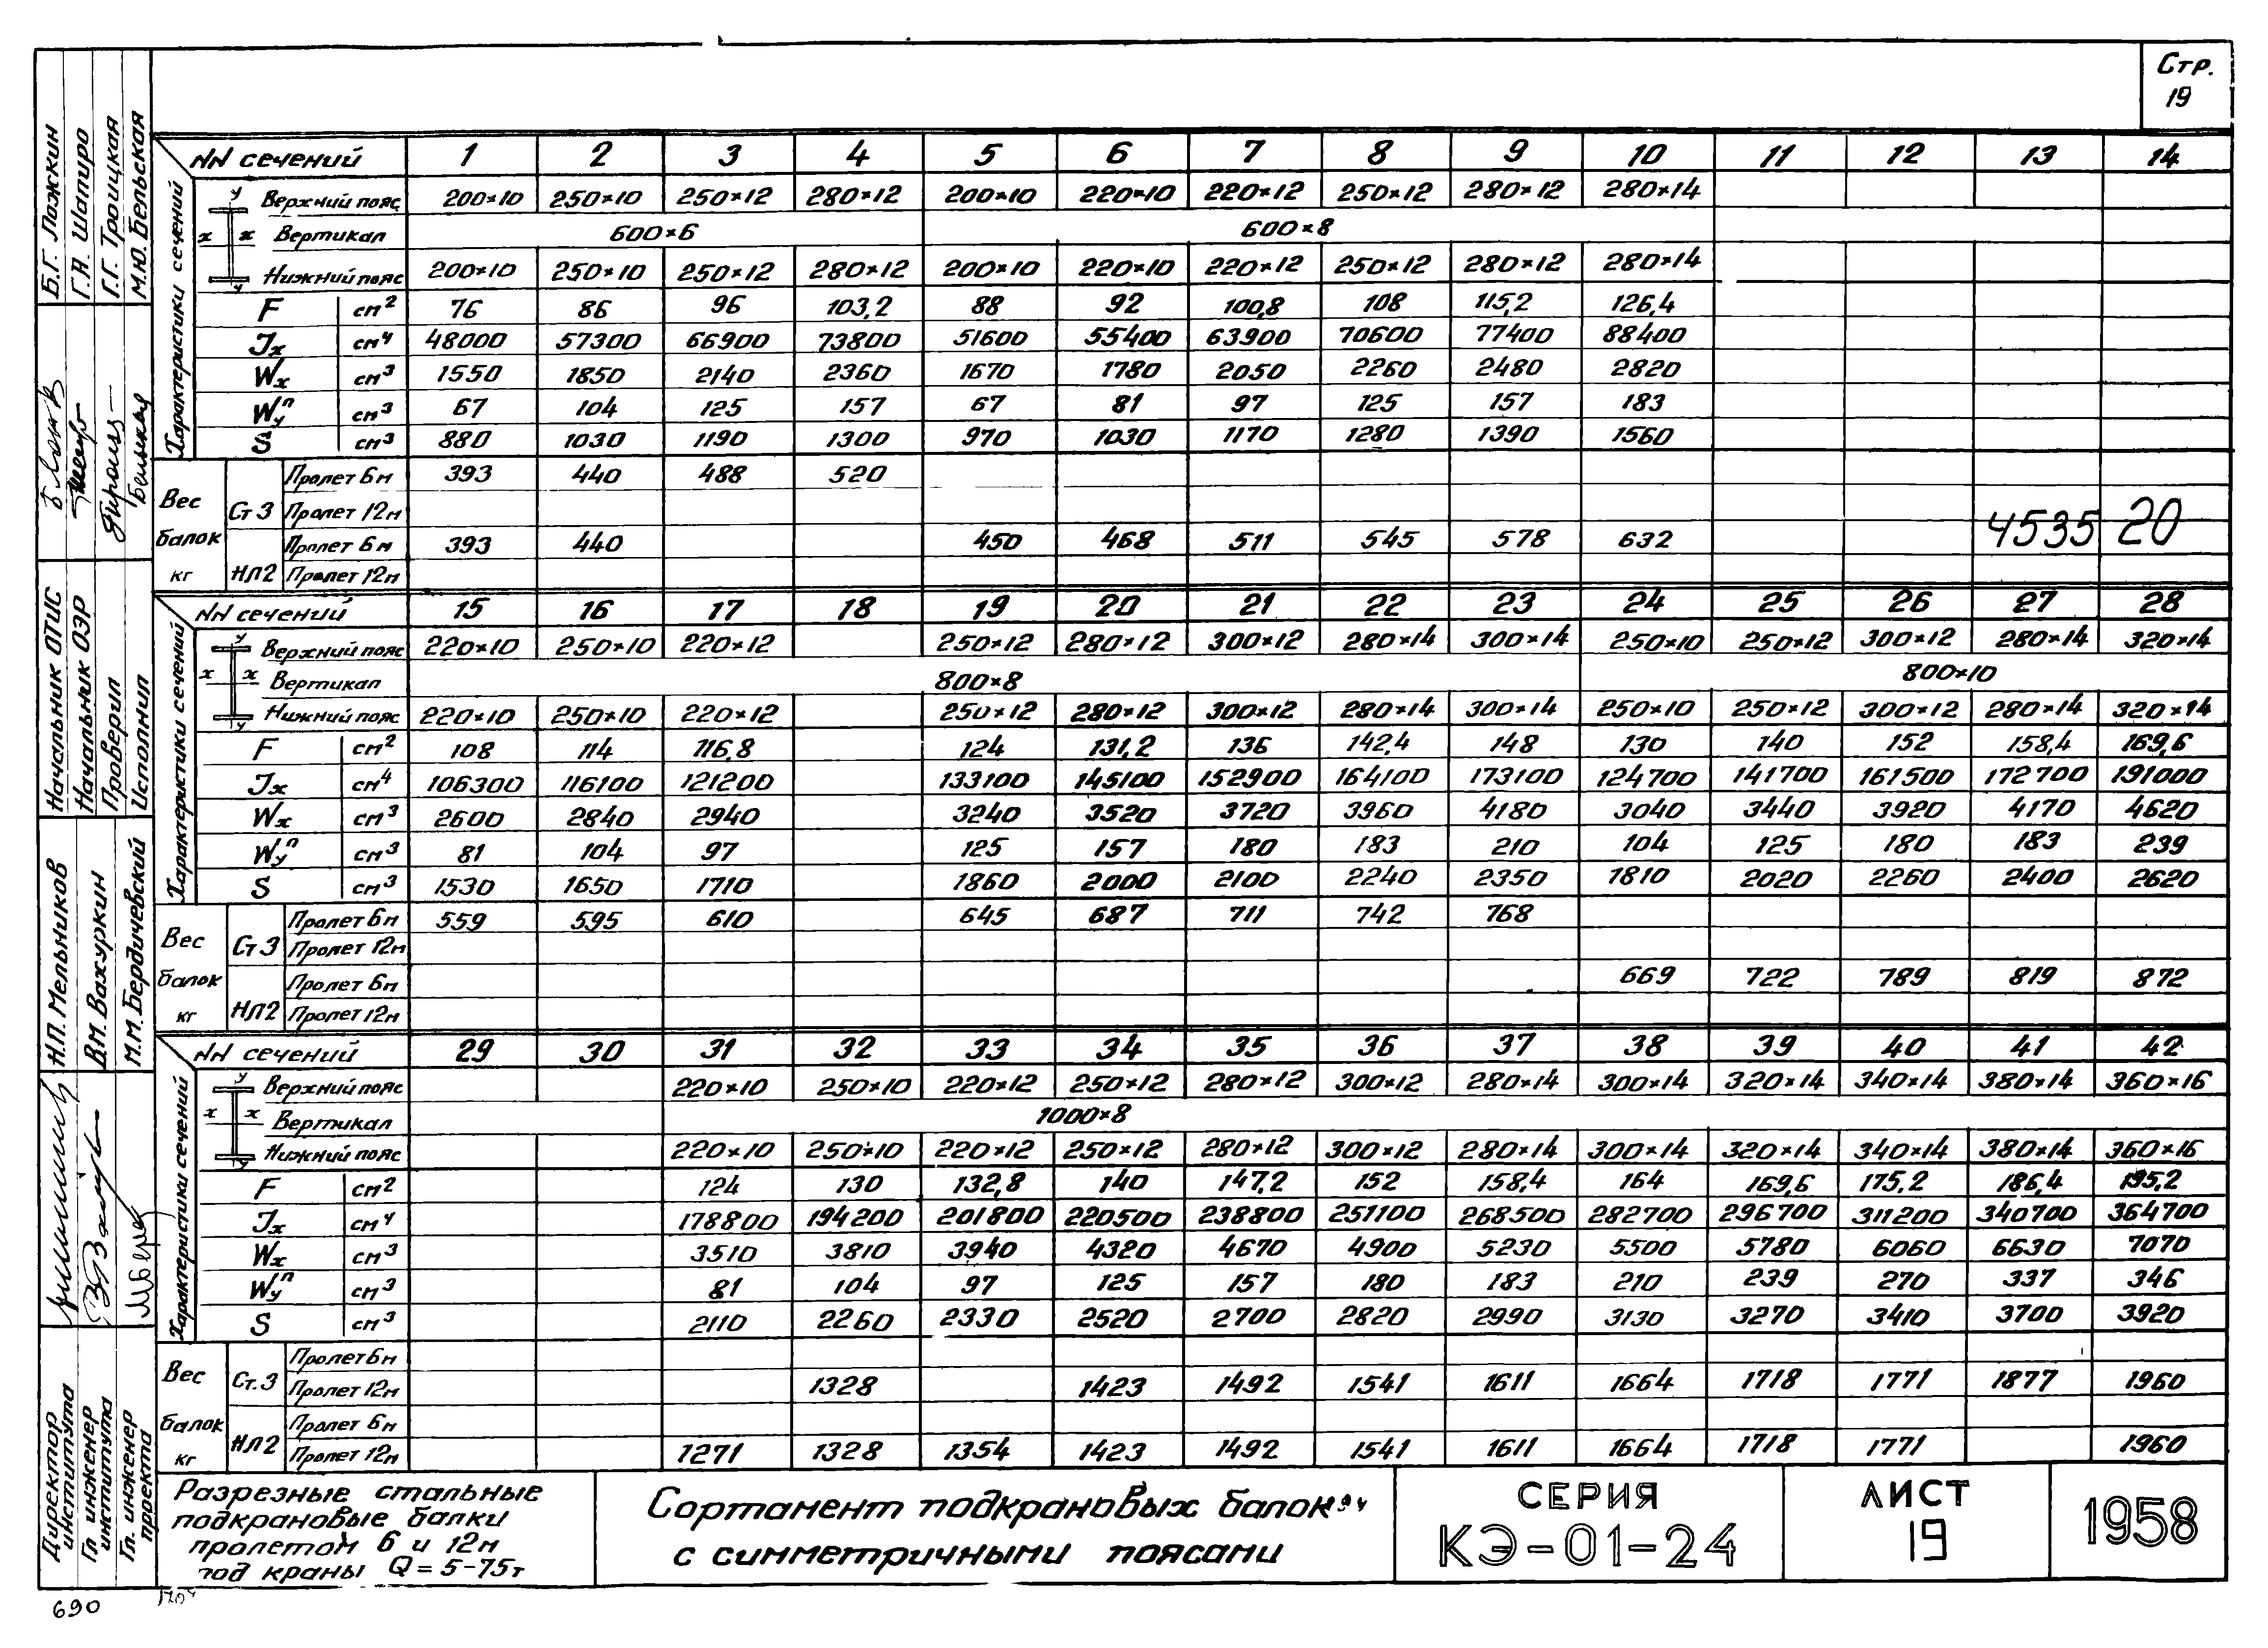 Стр.
19
NN сечений 1 2 3 4 5 6 7 8 9 10 11 12 13 14
Характеристики сечений
Верхний пояс 200×10 250×10 250×12 280×12 200×10 220×10 220×12 250×12 280×12 280×14
Вертикал 600×6 600×8
Нижний пояс 200×10 250×10 250×12 280×12 200×10 220×10 220×12 250×12 280×12 280×14
y
x x
y
F см² 76 86 96 103,2 88 92 100,8 108 115,2 126,4
Jx см⁴ 48000 57300 66900 73800 51600 55400 63900 70600 77400 88400
Wx см³ 1550 1850 2140 2360 1670 1780 2050 2260 2480 2820
Wyп см³ 67 104 125 157 67 81 97 125 157 183
S см³ 880 1030 1190 1300 970 1030 1170 1280 1390 1560
Вес балок кг
Ст 3 Пролет 6м 393 440 488 520
Пролет 12м
НЛ2 Пролет 6м 393 440 450 468 511 545 578 632
Пролет 12м
4535 20
NN сечений 15 16 17 18 19 20 21 22 23 24 25 26 27 28
Характеристики сечений
Верхний пояс 220×10 250×10 220×12 250×12 280×12 300×12 280×14 300×14 250×10 250×12 300×12 280×14 320×14
Вертикал 800×8 800×10
Нижний пояс 220×10 250×10 220×12 250×12 280×12 300×12 280×14 300×14 250×10 250×12 300×12 280×14 320×14
y
x x
y
F см² 108 114 116,8 124 131,2 136 142,4 148 130 140 152 158,4 169,6
Jx см⁴ 106300 116100 121200 133100 145100 152900 164100 173100 124700 141700 161500 172700 191000
Wx см³ 2600 2840 2940 3240 3520 3720 3960 4180 3040 3440 3920 4170 4620
Wyп см³ 81 104 97 125 157 180 183 210 104 125 180 183 239
S см³ 1530 1650 1710 1860 2000 2100 2240 2350 1810 2020 2260 2400 2620
Вес балок кг
Ст 3 Пролет 6м 559 595 610 645 687 711 742 768
Пролет 12м
НЛ2 Пролет 6м 669 722 789 819 872
Пролет 12м
NN сечений 29 30 31 32 33 34 35 36 37 38 39 40 41 42
Характеристики сечений
Верхний пояс 220×10 250×10 220×12 250×12 280×12 300×12 280×14 300×14 320×14 340×14 380×14 360×16
Вертикал 1000×8
Нижний пояс 220×10 250×10 220×12 250×12 280×12 300×12 280×14 300×14 320×14 340×14 380×14 360×16
y
x x
y
F см² 124 130 132,8 140 147,2 152 158,4 164 169,6 175,2 186,4 195,2
Jx см⁴ 178800 194200 201800 220500 238800 251100 268500 282700 296700 311200 340700 364700
Wx см³ 3510 3810 3940 4320 4670 4900 5230 5500 5780 6060 6630 7070
Wyп см³ 81 104 97 125 157 180 183 210 239 270 337 346
S см³ 2110 2260 2330 2520 2700 2820 2990 3130 3270 3410 3700 3920
Вес балок кг
Ст.3 Пролет 6м
Пролет 12м 1328 1423 1492 1541 1611 1664 1718 1771 1877 1960
НЛ2 Пролет 6м
Пролет 12м 1271 1328 1354 1423 1492 1541 1611 1664 1718 1771 1960
Разрезные стальные
подкрановые балки
пролетом 6 и 12м
под краны Q = 5-75т
Сортамент подкрановых балок
с симметричными поясами
СЕРИЯ
КЭ-01-24
ЛИСТ
19
1958
Директор института Н.П. Мельников
Гл инженер института В.М. Вахуркин
Гл. инженер проекта М.М. Бердичевский
Начальник ОТИС Б.Г. Ложкин
Начальник ОЭР Г.А. Шапиро
Проверил Г.Г. Троицкая
Исполнил М.Ю. Бельская
690